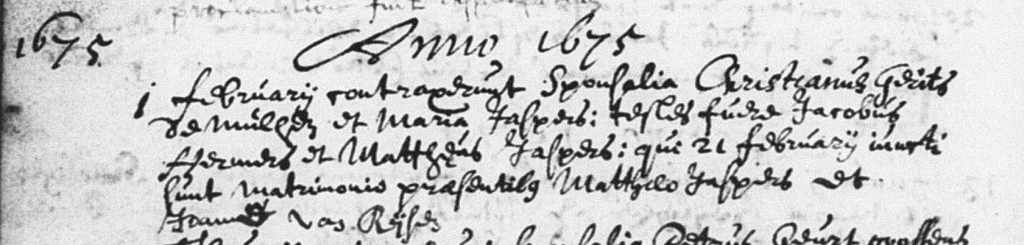 proclamatione
1675 Anno 1675
1 februarij contraxerunt Sponsalia Christianus Gerits
de Mulhem et Maria Jaspers: testes fuere Jacobus
Hermers et Mattheus Jaspers: qui 21 februarij iuncti
sunt matrimonio præsentibq Mattheo Jaspers et
Joanne van
Petrus Geurt